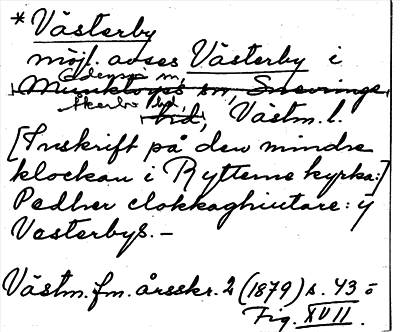 * Västerby
möjl. avses Västerby i
Munktorps sn, Snevringe
Åkerbo hd,
hd, Västm. l.
[Inskrift på den mindre
klockan i Rytterne kyrka:]
Pedher clokkaghiutare: ÿ
Vesterbys. –
Västm. fm. årsskr. 2 (1879) s. 43 o
Fig. XVII.